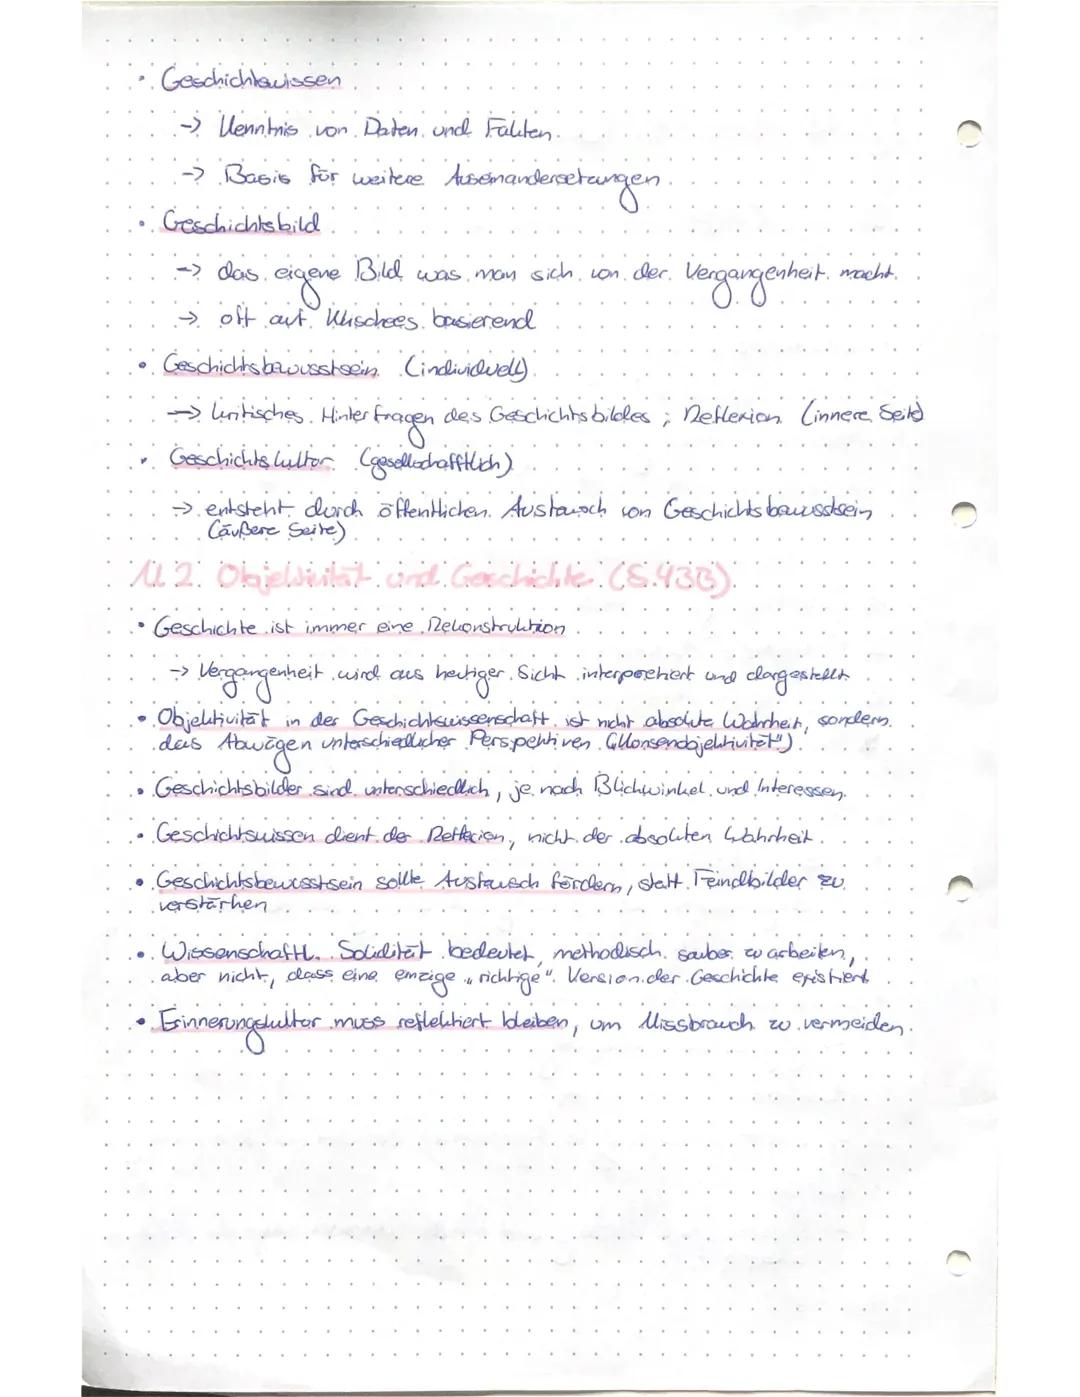 • Geschichtswissen
-> Kenntnis von Daten und Fakten.
-> Basis für weitere Auseinandersetzungen
• Geschichtsbild
-> das eigene Bild was man sich von der Vergangenheit macht.
-> oft auf Klischees basierend
• Geschichtsbewusstsein (individuell)
-> kritisches Hinterfragen des Geschichtsbildes ; Reflexion (innere Seite)
• Geschichtskultur (gesellschafftlich)
-> entsteht durch öffentlichen Austausch von Geschichtsbewusstsein
(äußere Seite)
2. Objektivität und Geschichte (S.433)
• Geschichte ist immer eine Rekonstruktion
-> Vergangenheit wird aus heutiger Sicht interpretiert und dargestellt
• Objektivität in der Geschichtswissenschaft ist nicht absolute Wahrheit, sondern
das Abwägen unterschiedlicher Perspektiven („Konsensobjektivität“).
• Geschichtsbilder sind unterschiedlich, je nach Blickwinkel und Interessen.
• Geschichtswissen dient der Reflexion, nicht der absoluten Wahrheit.
• Geschichtsbewusstsein sollte Austausch fördern, statt Feindbilder zu
verstärken
• Wissenschaftl. Solidität bedeutet, methodisch sauber zu arbeiten,
aber nicht, dass eine einzige „richtige“ Version der Geschichte existiert
• Erinnerungskultur muss reflektiert bleiben, um Missbrauch zu vermeiden.